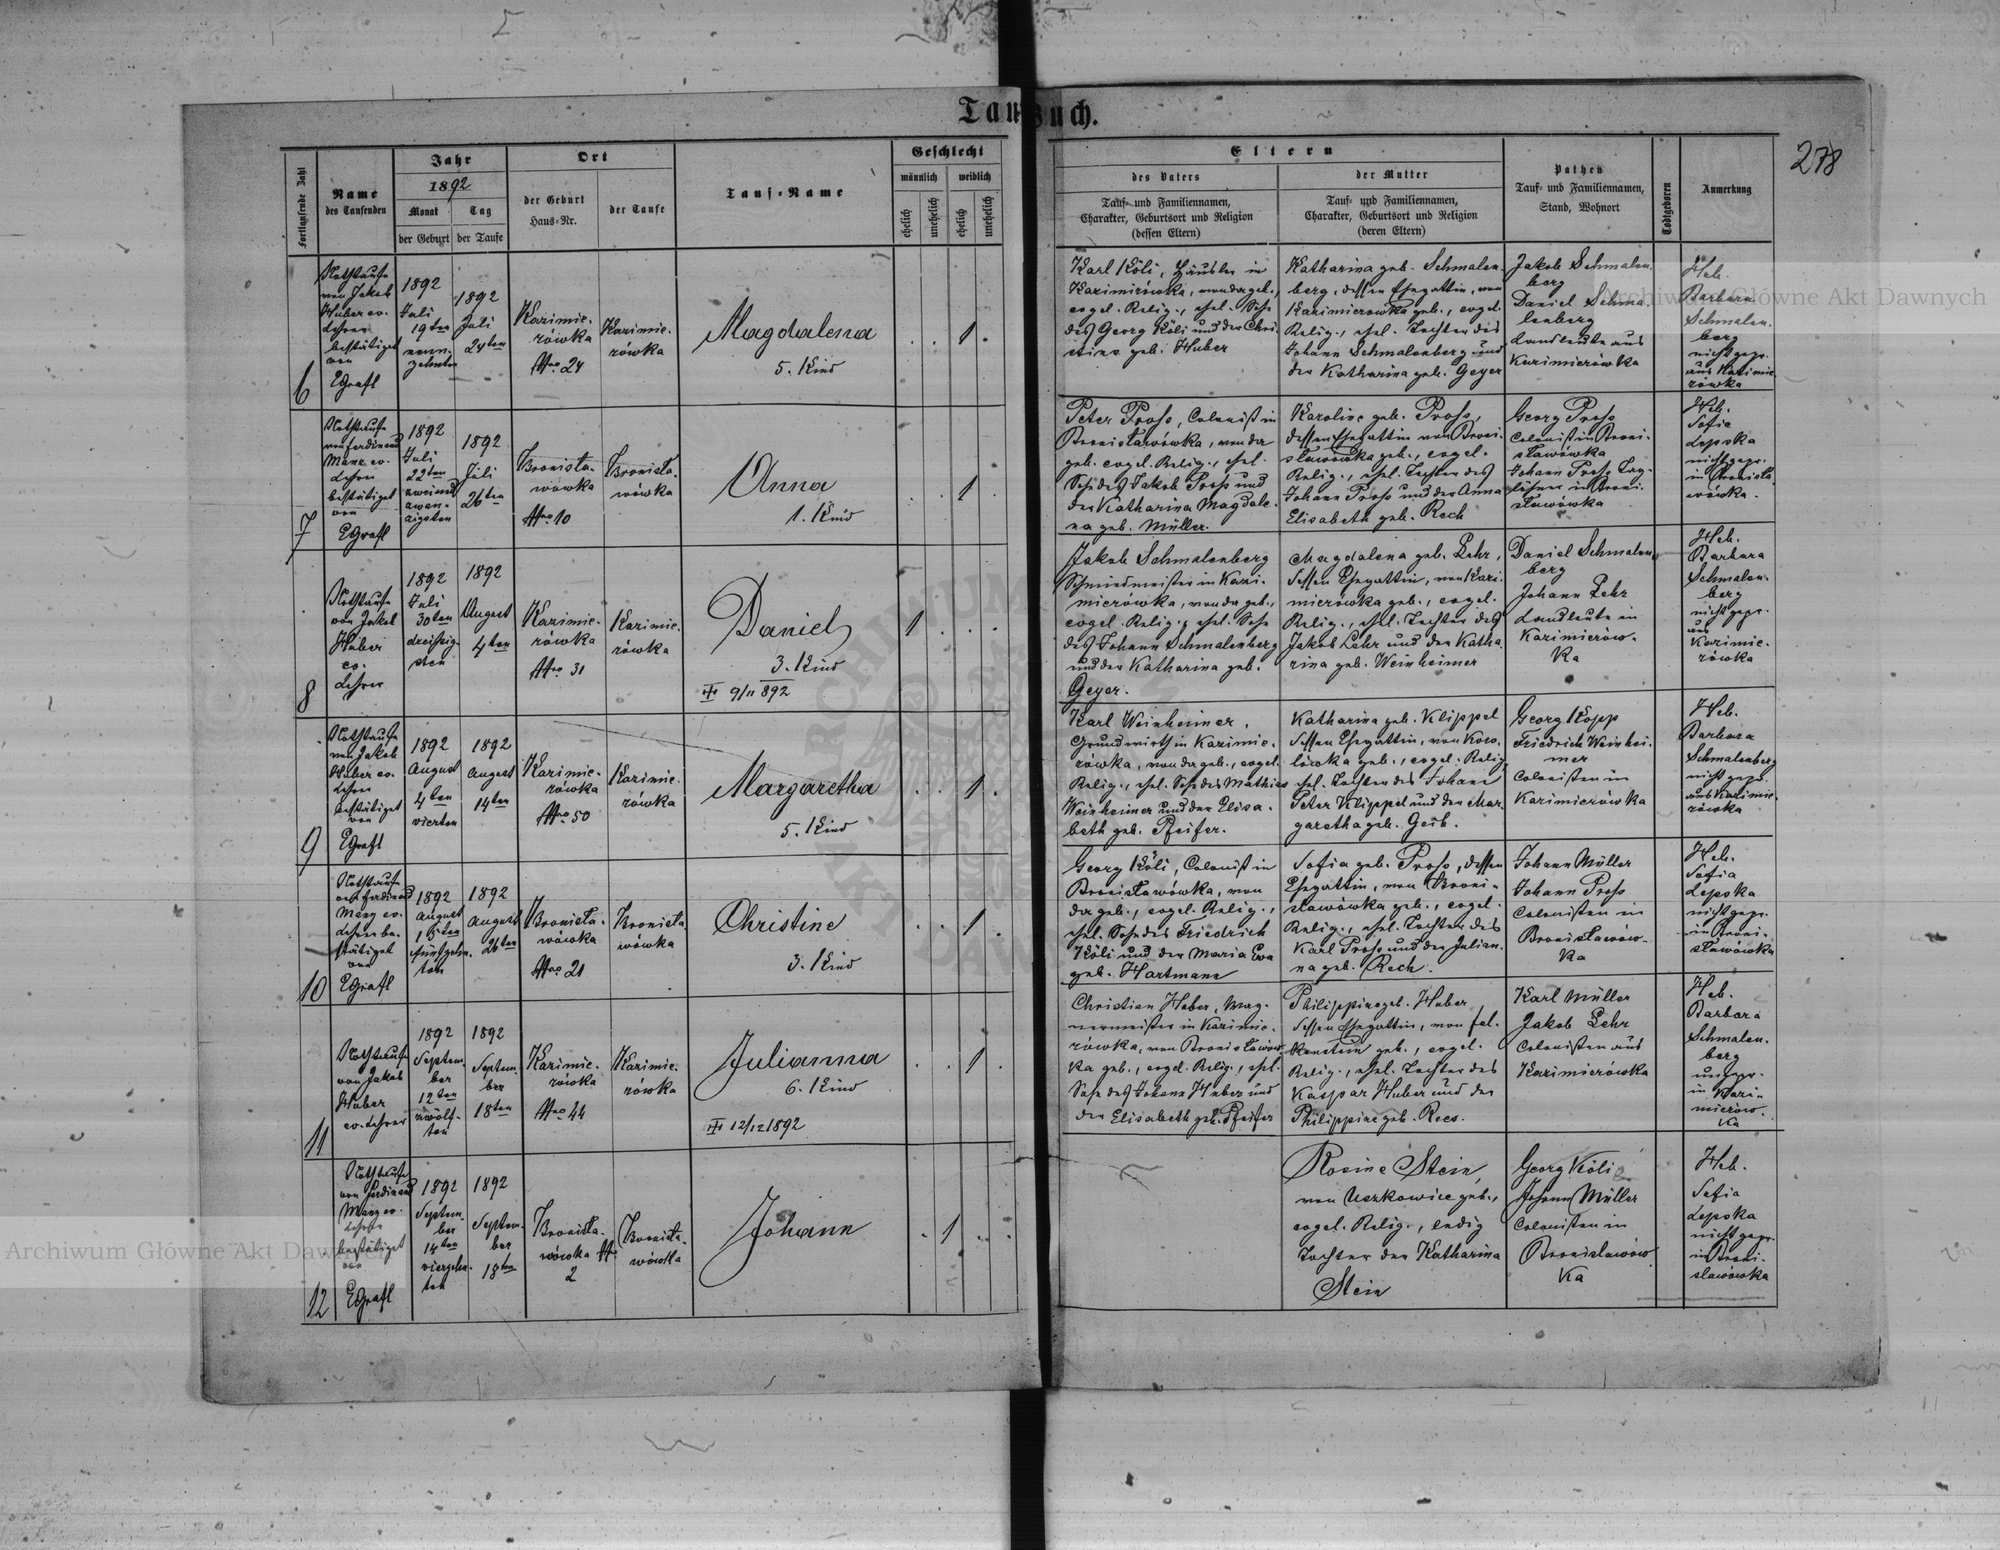 Taufbuch.
278
Fortlaufende Zahl
Name
des Taufenden
Jahr
1892
Monat
Tag
der Geburt
der Taufe
Ort
der Geburt
Haus-Nr.
der Taufe
Tauf-Name
Geschlecht
männlich
weiblich
ehelich
unehelich
ehelich
unehelich
Eltern
des Vaters
Tauf- und Familiennamen,
Charakter, Geburtsort und Religion
(dessen Eltern)
der Mutter
Tauf- und Familiennamen,
Charakter, Geburtsort und Religion
(deren Eltern)
Pathen
Tauf- und Familiennamen,
Stand, Wohnort
Todtgeboren
Anmerkung
6
Nothtaufe
von Jakob
Huber ev.
Lehrer
bestätiget
von
EGrafl
1892
Juli
19ten
neun-
zehnten
1892
Juli
24ten
Kazimie-
rówka
Nro 24
Kazimie-
rówka
Magdalena
5. Kind
1
Karl Köli, Häusler in
Kazimirówka, von da geb.,
evgel. Relig., ehel. Sohn
des Georg Köli und der Chri-
stine geb. Huber
Katharina geb. Schmalen-
berg, dessen Ehegattin, von
Kazimierowka geb., evgel.
Relig., ehel. Tochter des
Johann Schmalenberg und
der Katharina geb. Geyer
Jakob Schmalen-
berg
Daniel Schma-
lenberg
Landleute aus
Kazimierówka
Heb.
Barbara
Schmalen-
berg
nicht gepr.
aus Kazimie-
rówka
7
Nothtaufe
von Ferdinand
Manz ev.
Lehrer
bestätiget
von
EGrafl
1892
Juli
22ten
zweiund
zwan-
zigsten
1892
Juli
26ten
Bronisła-
wówka
Nro 10
Bronisła-
wówka
Anna
1. Kind
1
Peter Pross, Colonist in
Bronisławówka, von da
geb. evgel. Relig., ehel.
Sohn des Jakob Pross und
der Katharina Magdale-
na geb. Müller.
Karoline geb. Pross,
dessen Ehegattin von Broni-
sławówka geb., evgel.
Relig., ehel. Tochter des
Johann Pross und der Anna
Elisabeth geb. Rech
Georg Pross
Colonist in Broni-
sławówka
Johann Pross Tag-
löhner in Broni-
sławówka
Heb.
Sofie
Lepska
nicht gepr.
in Bronisła-
wówka.
8
Nothtaufe
von Jakob
Huber
ev.
Lehrer
1892
Juli
30ten
dreißig-
sten
1892
August
4ten
Kazimie-
rówka
Nro 31
Kazimie-
rówka
Daniel
3. Kind
9/11 892
1
Jakob Schmalenberg
Schmiedmeister in Kazi-
mierówka, von da geb.,
evgel. Relig., ehel. Sohn
des Johann Schmalenberg
und der Katharina geb.
Geyer.
Magdalena geb. Lehr,
dessen Ehegattin, von Kazi-
mierówka geb., evgel.
Relig., ehel. Tochter des
Jakob Lehr und der Katha-
rina geb. Weinheimer
Daniel Schmalen-
berg
Johann Lehr
Landleute in
Kazimierów-
ka
Heb.
Barbara
Schmalen-
berg
nicht gepr.
aus
Kazimie-
rówka
9
Nothtaufe
von Jakob
Huber ev.
Lehrer
bestätiget
von
EGrafl
1892
August
4ten
vierten
1892
August
14ten
Kazimie-
rówka
Nro 50
Kazimie-
rówka
Margaretha
5. Kind
1
Karl Weinheimer,
Grundwirth in Kazimie-
rówka, von da geb., evgel.
Relig., ehel. Sohn des Mathias
Weinheimer und der Elisa-
beth geb. Pfeifer.
Katharina geb. Klippel
dessen Ehegattin, von Koro-
lówka geb., evgel. Relig,
ehel. Tochter des Johann
Peter Klippel und der Mar-
garetha geb. Geib.
Georg Kopp
Friedrich Weinhei-
mer
Colonisten in
Kazimierówka
Heb.
Barbara
Schmalenberg
nicht gepr.
aus Kazimie-
rówka
10
Nothtaufe
von Ferdinand
Manz ev.
Lehrer be-
stätiget
von
EGrafl
1892
August
15ten
fünfzehn-
ten
1892
August
26ten
Bronisła-
wówka
Nro 21
Bronisła-
wówka
Christine
3. Kind
1
Georg Köli, Colonist in
Bronisławówka, von
da geb., evgel. Relig.,
ehel. Sohn des Friedrich
Köli und der Maria Eva
geb. Hartmann
Sofia geb. Pross, dessen
Ehegattin, von Broni-
sławówka geb., evgel.
Relig., ehel. Tochter des
Karl Pross und der Julian-
na geb. Rech.
Johann Müller
Johann Pross
Colonisten in
Bronisławów-
ka
Heb.
Sofia
Lepska
nicht gepr.
in Broni-
sławówka
11
Nothtaufe
von Jakob
Huber
ev. Lehrer
1892
Septem-
ber
12ten
zwölf-
ten
1892
Septem-
ber
18ten
Kazimie-
rówka
Nro 44
Kazimie-
rówka
Julianna
6. Kind
12/12 1892
1
Christian Huber, Wag-
nermeister in Kazimie-
rówka, von Bronisławów-
ka geb., evgel. Relig., ehel.
Sohn des Johann Huber und
der Elisabeth geb. Pfeifer
Philippine geb. Huber
dessen Ehegattin, von Fal-
kenstein geb., evgel.
Relig., ehel. Tochter des
Kaspar Huber und der
Philippine geb. Rees.
Karl Müller
Jakob Lehr
Colonisten aus
Kazimierówka
Heb.
Barbara
Schmalen-
berg
ungepr.
in Kazi-
mierów-
ka
12
Nothtaufe
von Ferdinand
Manz ev.
Lehrer
bestätiget
von
EGrafl
1892
Septem-
ber
14ten
vierzehn-
ten
1892
Septem-
ber
18ten
Bronisła-
wówka Nro
2
Bronisła-
wówka
Johann
1
Rosine Stein,
von Uszkowice geb.,
evgel. Relig., ledig
Tochter der Katharina
Stein
Georg Köli
Johann Müller
Colonisten in
Bronisławów-
ka
Heb.
Sofia
Lepska
nicht gepr.
in Broni-
sławówka
Archiwum Główne Akt Dawnych
Archiwum Główne Akt Dawnych